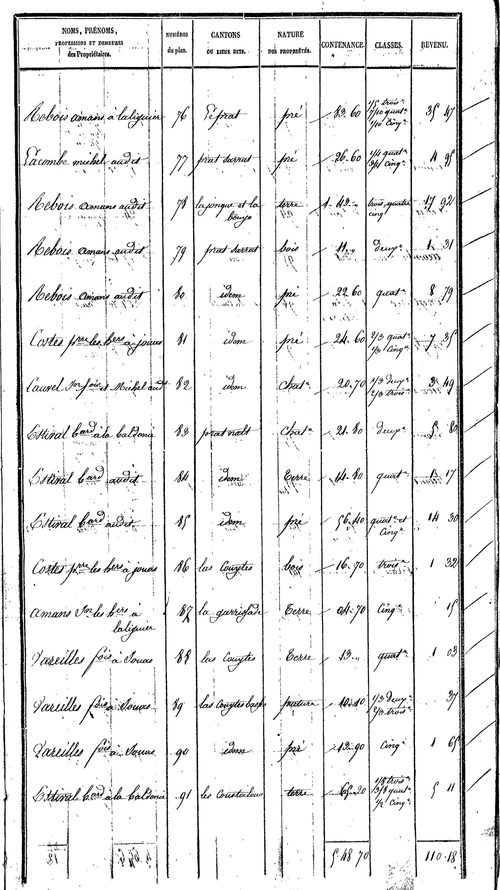 NOMS, PRÉNOMS, PROFESSIONS ET DEMEURES des Propriétaires. NUMÉROS du plan. CANTONS OU LIEUX DITS. NATURE DES PROPRIÉTÉS. CONTENANCE. CLASSES. REVENU.
Rebois amans à laliquier 76 L'éprat pré 83.60 1/5 trois^e 7/10 quat^e 1/10 cinq^e 35 47
Lacombe michel audit 77 prat surrat pré 26.60 1/4 quat^e 3/4 cinq^e 4 95
Rebois amans audit 78 la jonque et la terre 1. 43 trois, quatre cinq 17 92
Rebois amans audit 79 prat surrat bois 11 deux^e 1 31
Rebois amans audit 80 idem pré 22.60 quat^e 8 79
Costes p^rre les h^ers à jouas 81 idem pré 24.60 2/3 quat^e 1/3 cinq^e 7 35
Laurel J^n fois et Michel audt 82 idem chat^e 20.70 1/3 deux^e 2/3 trois^e 3 49
Estival b^ard à la baldonie 83 prat nalt Chat^e 21.80 deux^e 5 80
Estival b^ard audit 84 idem Terre 14.80 quat^e 1 17
Estival b^ard audit 85 idem pré 56.40 quat^e et cinq^e 14 30
Costes p^rre les h^ers à jouas 86 las Couytes bois 16.70 trois^e 1 32
amans J^n les h^ers à laliquier 87 la garrissade Terre 04.70 Cinq^e 15
Vareilles fois à Jouas 88 las Couytes Terre 13 quat^e 1 03
Vareilles fois à Jouas 89 las Couytes basses pature 10.10 1/3 deux^e 2/3 trois^e 37
Vareilles fois à Jouas 90 idem pré 12.90 Cinq^e 1 65
Estival b^ard à la baldonie 91 les Coustalous terre 65.20 1/8 trois^e 3/8 quat^e 1/2 cinq^e 5 11
5 48 70 110.18